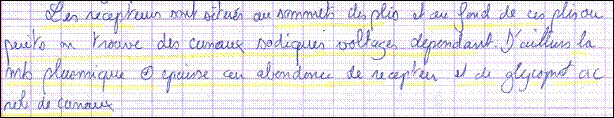 Les récepteurs sont situés au sommets des plis et au fond de ces plis ou
puits on trouve des canaux sodiques voltages dépendant. D'ailleurs la
mb plasmique ⊕ épaisse en abondance de récepteur et de glycoprot ac
de canaux